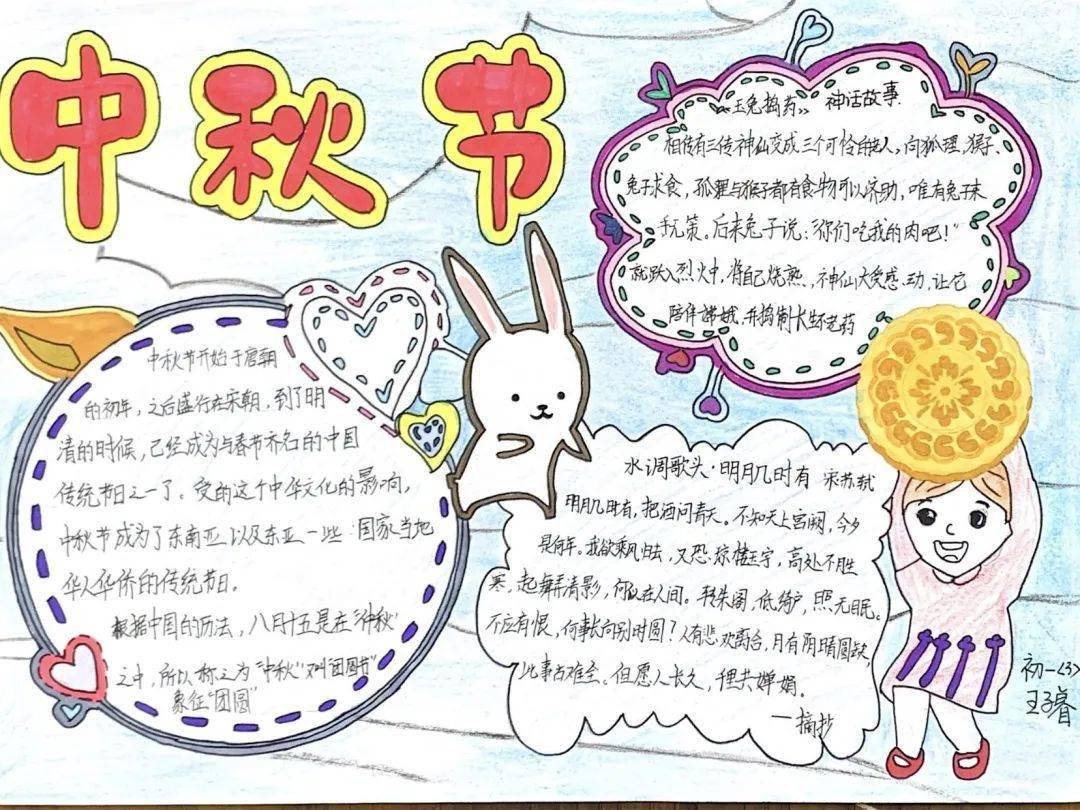 中秋节
《玉兔捣药》 神话故事.
相传有三位神仙变成三个可怜的老人,向狐理,猴子、
兔子求食,孤狸与猴子都有食物可以济助,唯有兔子束
手无策。后来兔子说:“你们吃我的肉吧!”
就跃入烈火中,将自己烧熟,神仙大受感动,让它
陪伴嫦娥,并捣制长生不老药
中秋节开始于唐朝
的初年,之后盛行在宋朝,到了明
清的时候,已经成为与春节齐名的中国
传统节日之一了。受的这个中华文化的影响,
中秋节成为了东南亚以及东亚一些国家当地
华人华侨的传统节日。
根据中国的历法,八月十五是在“仲秋”
之中,所以称之为“中秋”又叫“团圆节”
象征“团圆”
水调歌头·明月几时有 宋苏轼
明月几时有,把酒问青天。不知天上宫阙,今夕
是何年。我欲乘风归去,又恐琼楼玉宇,高处不胜
寒,起舞弄清影,何似在人间。转朱阁,低绮户,照无眠。
不应有恨,何事长向别时圆?人有悲欢离合,月有阴晴圆缺,
此事古难全。但愿人长久,千里共婵娟。
一摘抄
初一(3)
王睿